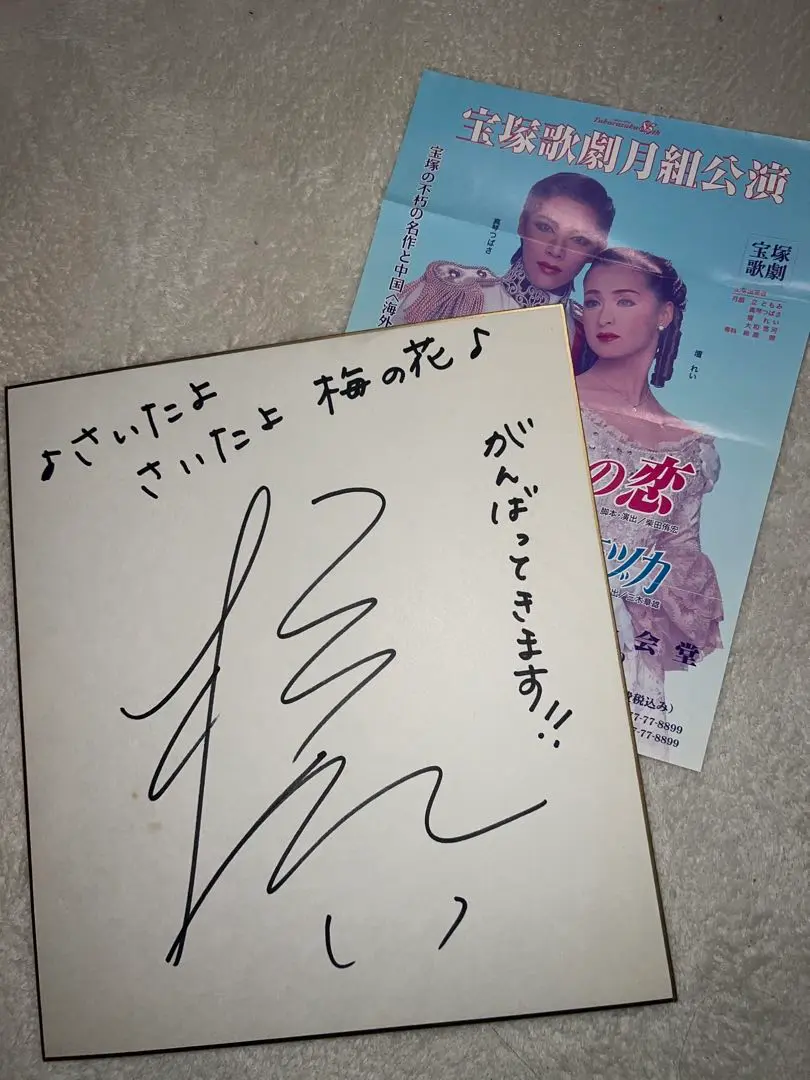 ♪さいたよ
さいたよ 梅の花♪
がんばってきます!!
檀れい
宝塚歌劇月組公演
宝塚の不朽の名作と中国へ海外
真琴つばさ
檀 れい
宝塚
歌劇
月組 立 ともみ
真琴つばさ
檀 れい
大和 悠河
の恋
脚本・演出/柴田侑宏
ヅカ
出/三木章雄
会堂
費税込み)
77-8899
7-77-8899